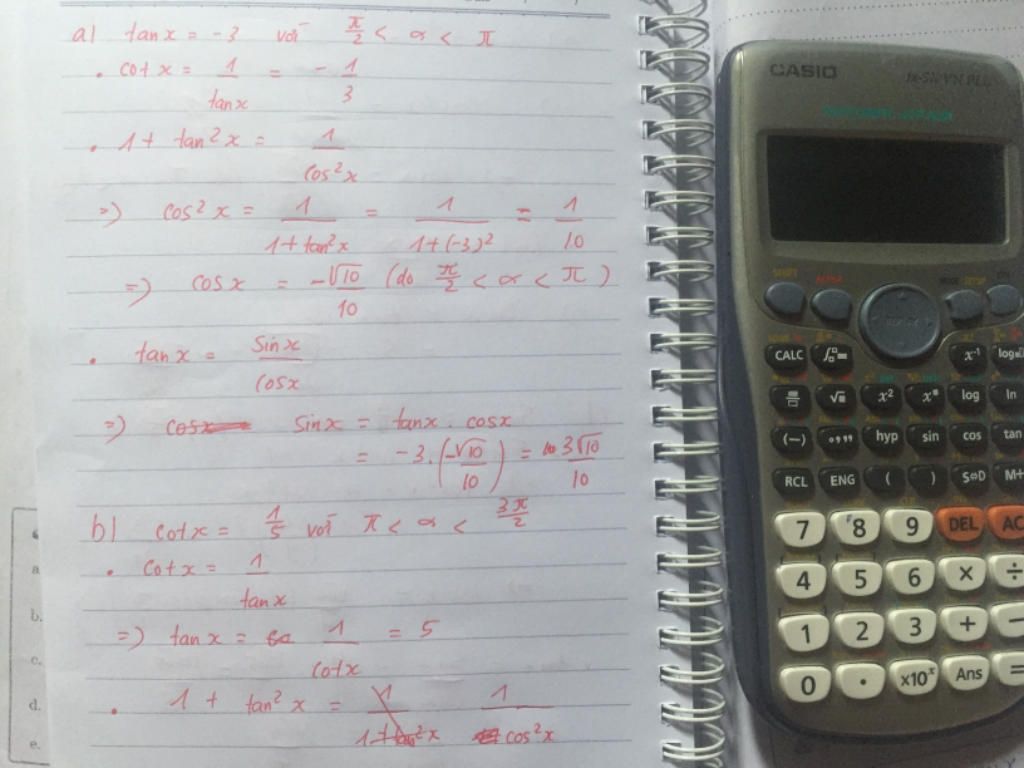 a) tan x = -3 với π/2 < α < π
. cot x = 1/tan x = - 1/3
. 1 + tan² x = 1/cos² x
=) cos² x = 1/(1 + tan² x) = 1/(1 + (-3)²) = 1/10
=) cos x = -√10/10 (do π/2 < α < π)
. tan x = sin x/cos x
=) cos x sin x = tan x . cos x
= -3 . (-√10/10) = 3√10/10
b) cot x = 1/5 với π < α < 3π/2
. cot x = 1/tan x
=) tan x = 1/cot x = 5
. 1 + tan² x = 1/(1 + tan² x) 1/cos² x
a.
b.
c.
d.
e.
CASIO
SHIFT ALPHA MODE SETUP ON
REPLAY
CALC ∫ = x⁻¹ log
√ x² x■ log ln
(−) °,,, hyp sin cos tan
RCL ENG ( ) S⇔D M+
7 8 9 DEL AC
4 5 6 × ÷
1 2 3 + −
0 . ×10ˣ Ans =